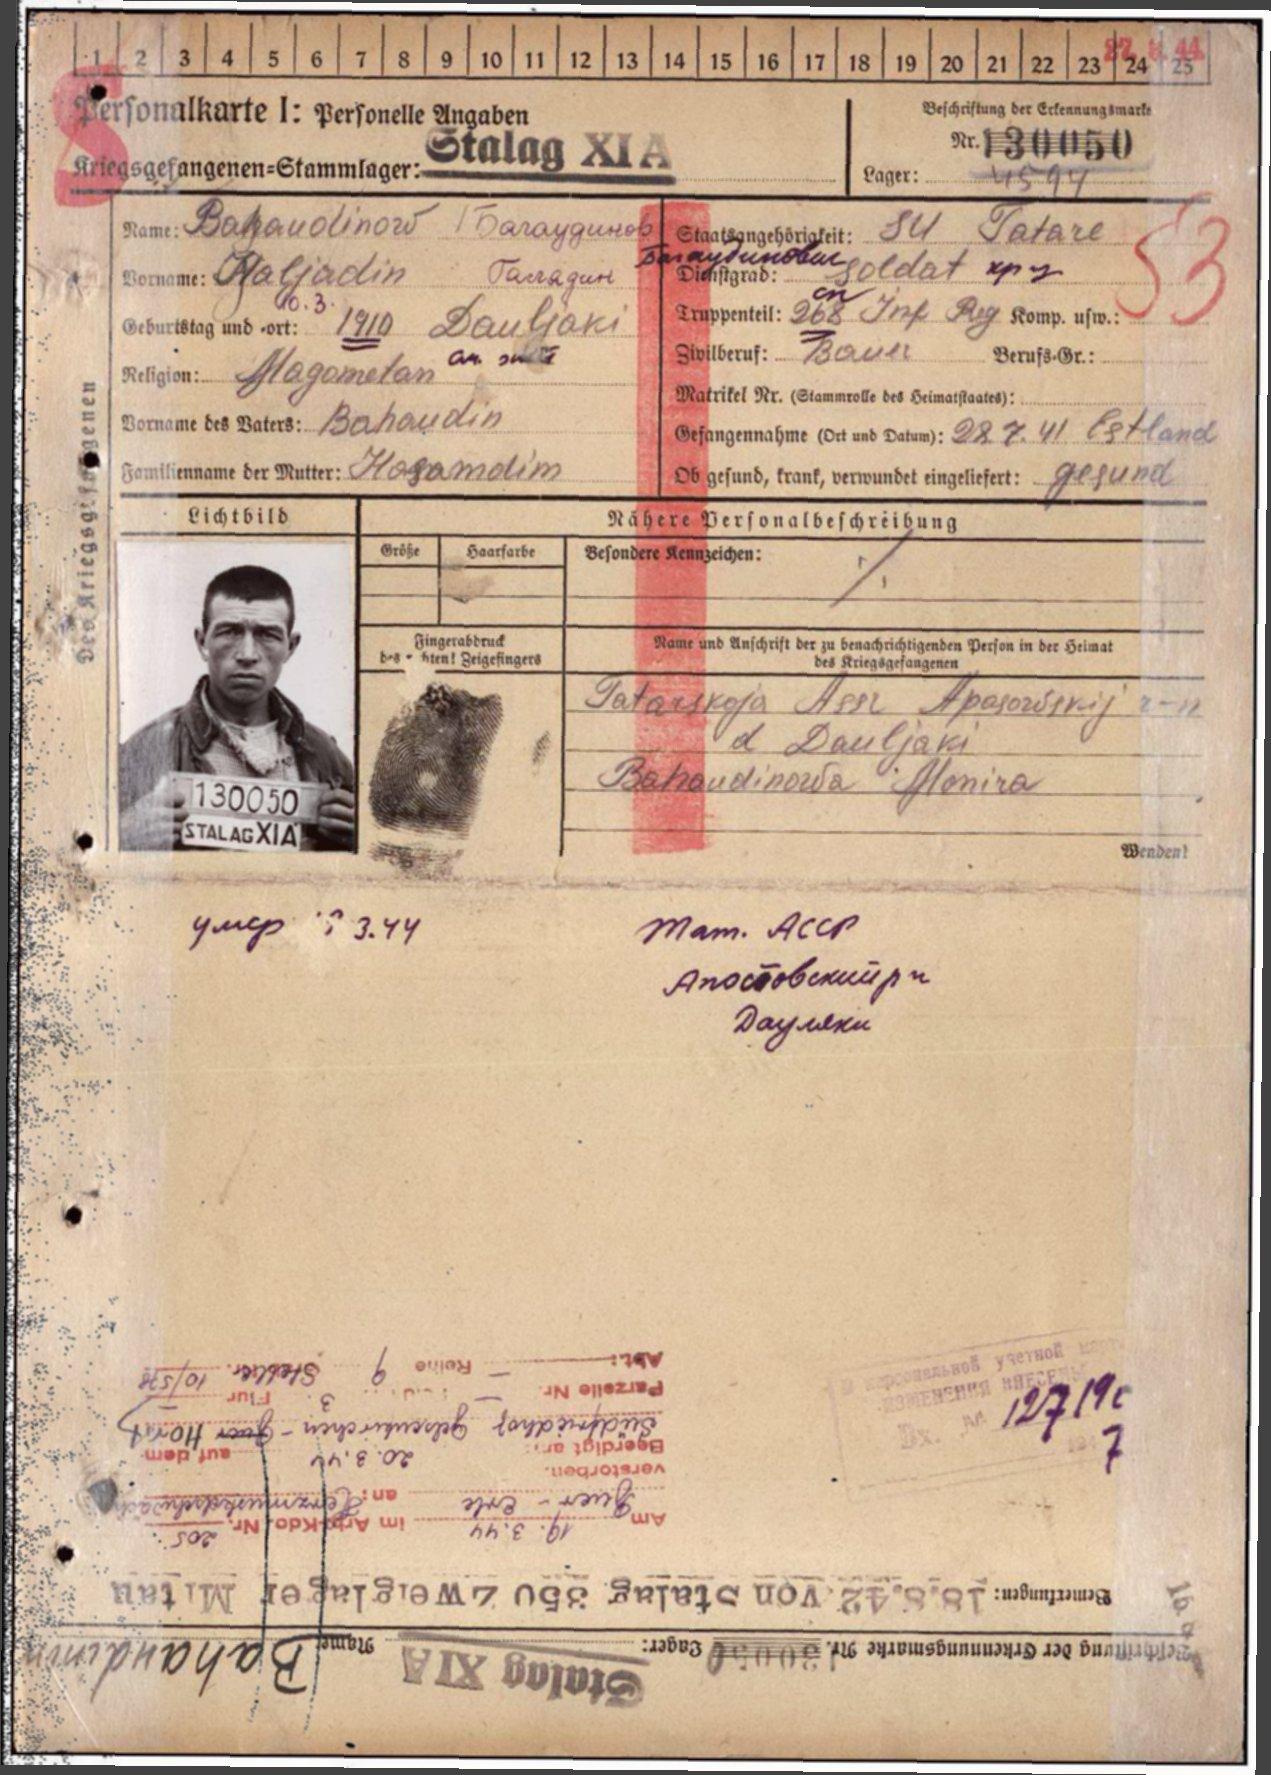 1 2 3 4 5 6 7 8 9 10 11 12 13 14 15 16 17 18 19 20 21 22 23 24 25
Personalkarte I: Personelle Angaben
Beschriftung der Erkennungsmarke
Kriegsgefangenen-Stammlager: Stalag XI A
Nr. 130050
Lager: 4594
S
53
Des Kriegsgefangenen
Name: Bahaudinow Багаудинов
Vorname: Haljadin Галядин
Багаудинович
Geburtstag und -ort: 10.3. 1910 Dauljaki
Religion: Magometan
Vorname des Vaters: Bahaudin
Familienname der Mutter: Hosamdim
Staatsangehörigkeit: SU Tatare
Dienstgrad: Soldat кр-ц
Truppenteil: 268 Inf Reg Komp. usw.:
сп
Zivilberuf: Bauer Berufs-Gr.:
Matrikel Nr. (Stammrolle des Heimatstaates):
Gefangennahme (Ort und Datum): 28.7.41 Estland
Ob gesund, krank, verwundet eingeliefert: gesund
Lichtbild
Nähere Personalbeschreibung
Größe Haarfarbe Besondere Kennzeichen:
Fingerabdruck
Zeigefingers
Name und Anschrift der zu benachrichtigenden Person in der Heimat
des Kriegsgefangenen
Tatarskoja Assr Apasowskij r-n
d Dauljaki
Bahaudinowa Monira
130050
STALAG XIA
Wenden!
умер 3.44
Тат. АССР
Апостовский р н
Дауляки
персональной учетной
ИЗМЕНЕНИЯ ВНЕСЕНЫ
Вх. 127
Beschriftung der Erkennungsmarke Nr. 130050 Lager: Stalag XIA Name Bahaudinow
Bemerkungen: 18.8.42 von Stalag 350 Zweiglager Mitau
Am 19.3.44 im Arb.Kdo. Nr. 205
Buer-Erle an: Herzmuskelschwäche
verstorben.
Beerdigt am: 20.3.44 auf dem
Südfriedhof Gelsenkirchen-Buer Horst
Parzelle Nr. — Flur
Abt.: — Reihe 9 Stelle 10/578